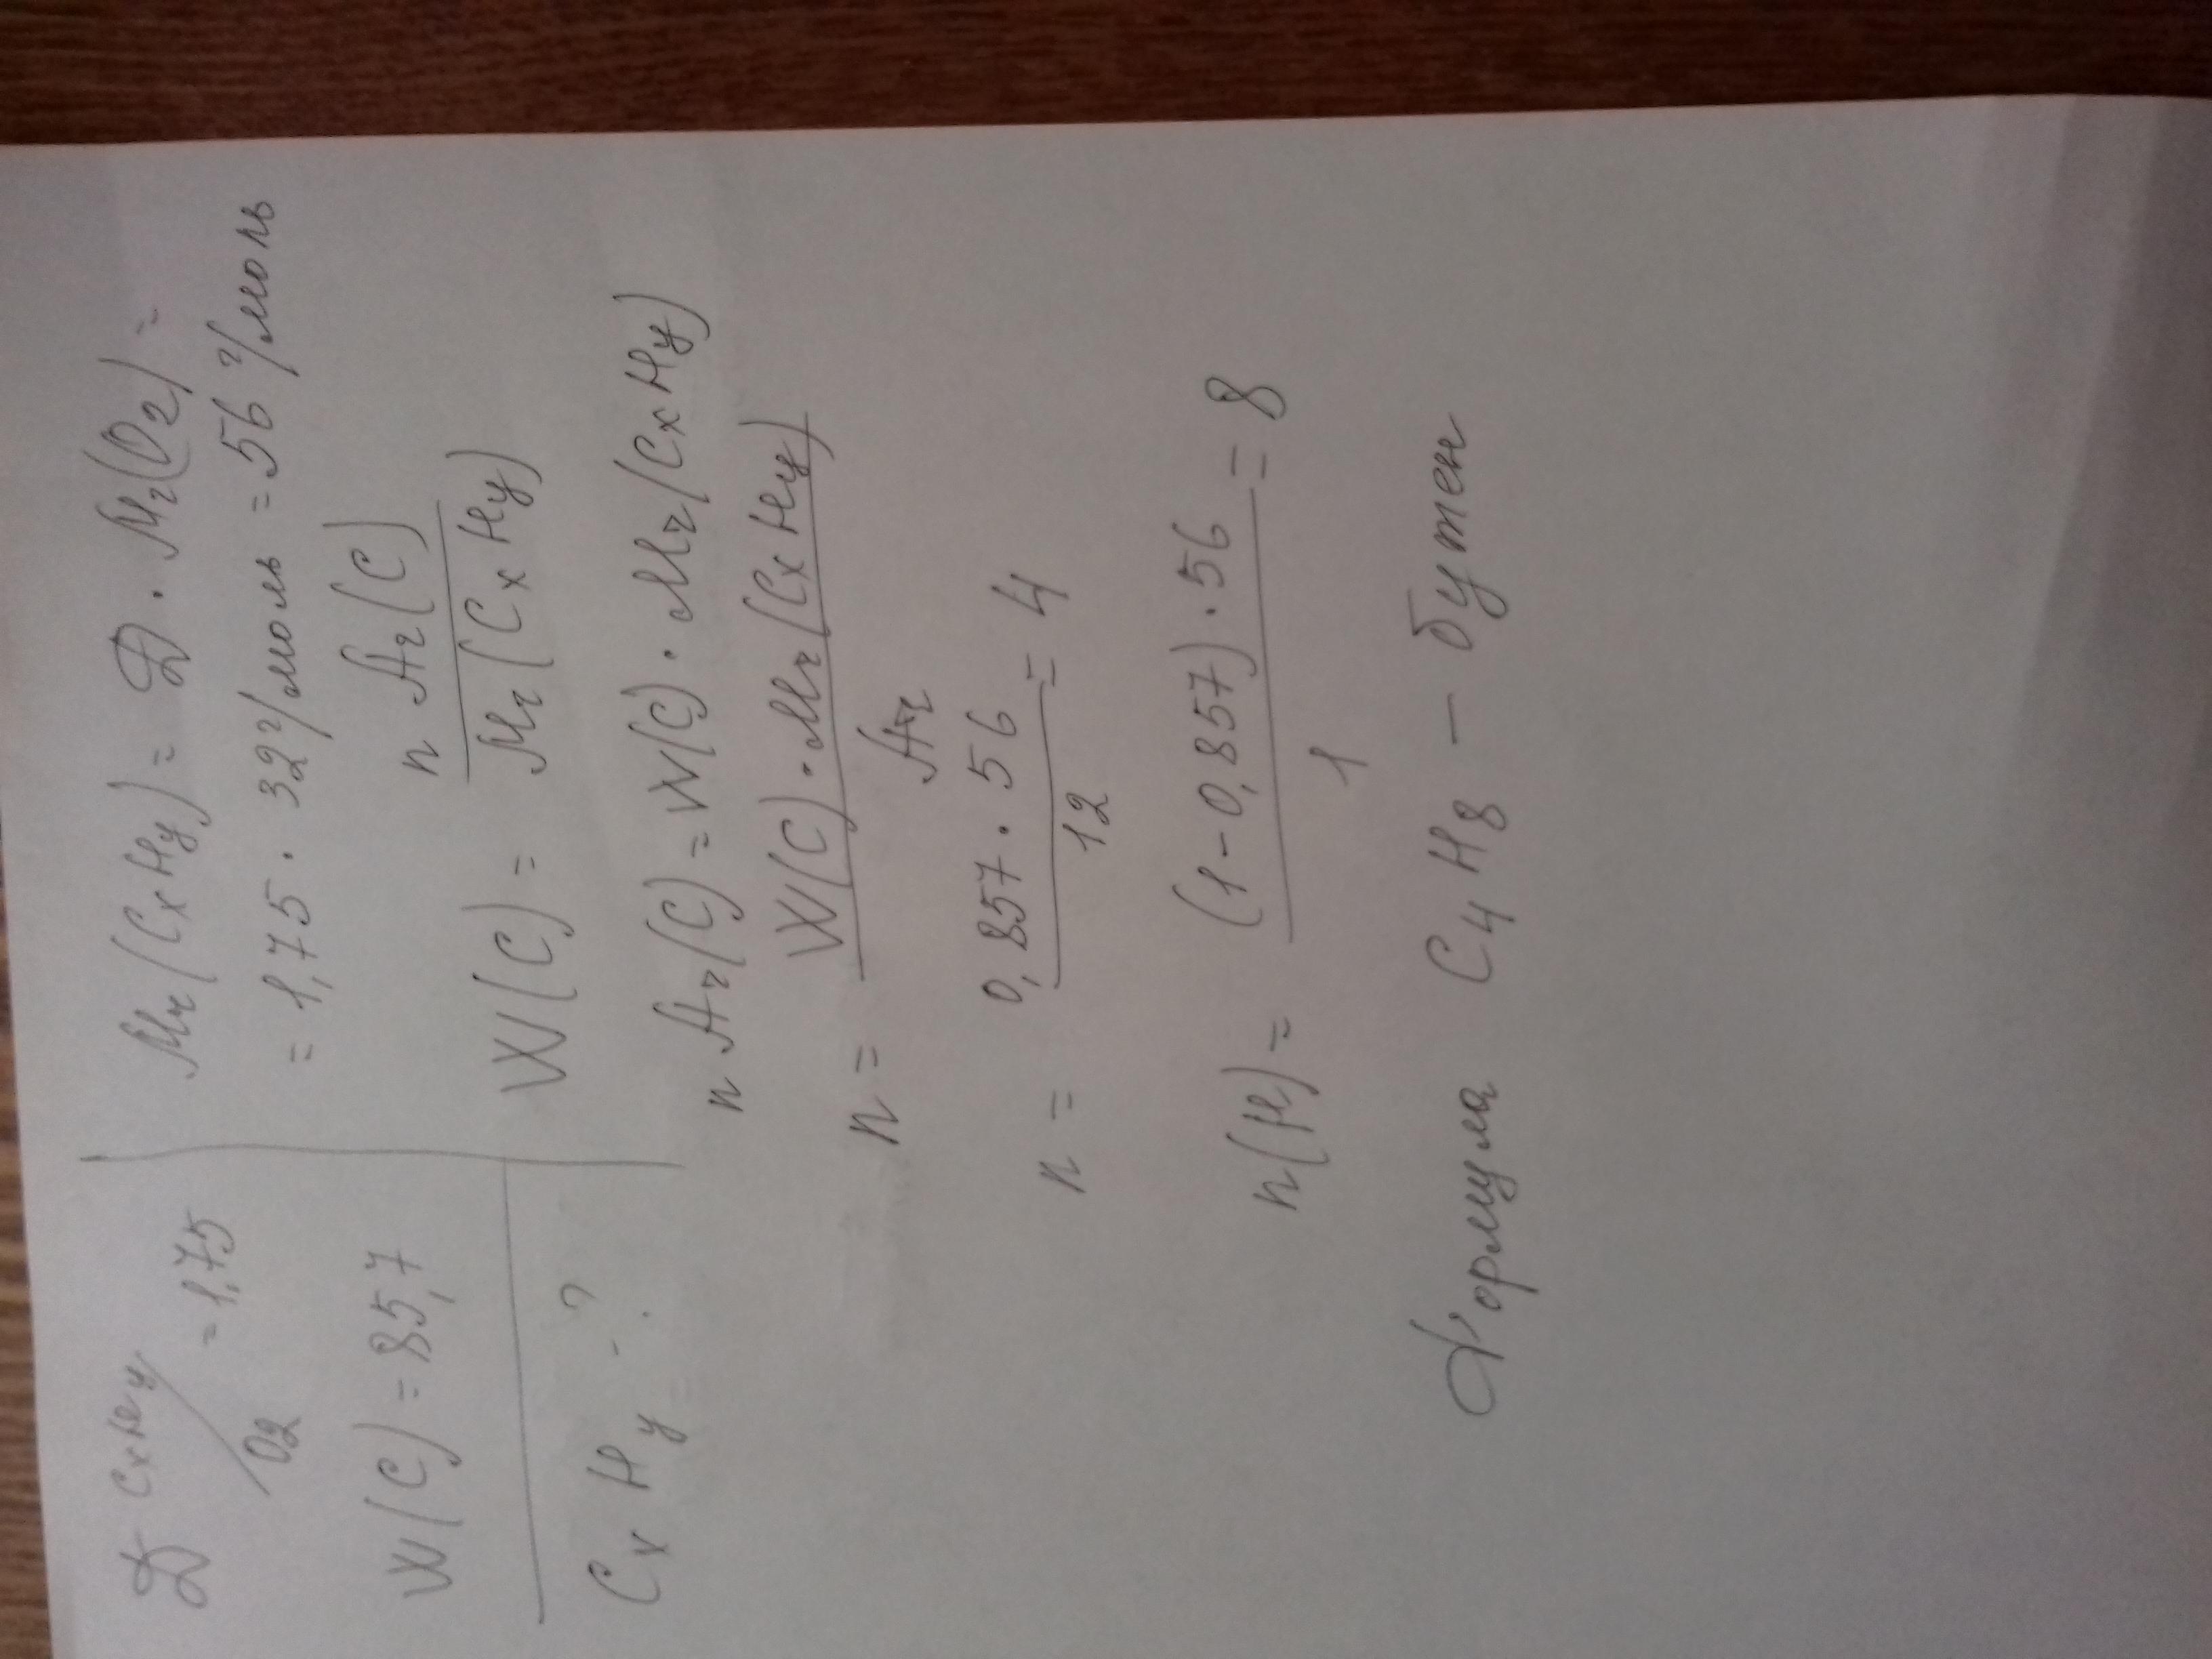 D CxHy/O2 = 1,75
W(C) = 85,7
CxHy - ?
Mr(CxHy) = D · Mr(O2) =
= 1,75 · 32 г/моль = 56 г/моль
W(C) = n Ar(C) / Mr(CxHy)
n Ar(C) = W(C) · Mr(CxHy)
n = W(C) · Mr(CxHy) / Ar
n = 0,857 · 56 / 12 = 4
n(H) = (1-0,857) · 56 / 1 = 8
Формула C4H8 — бутен